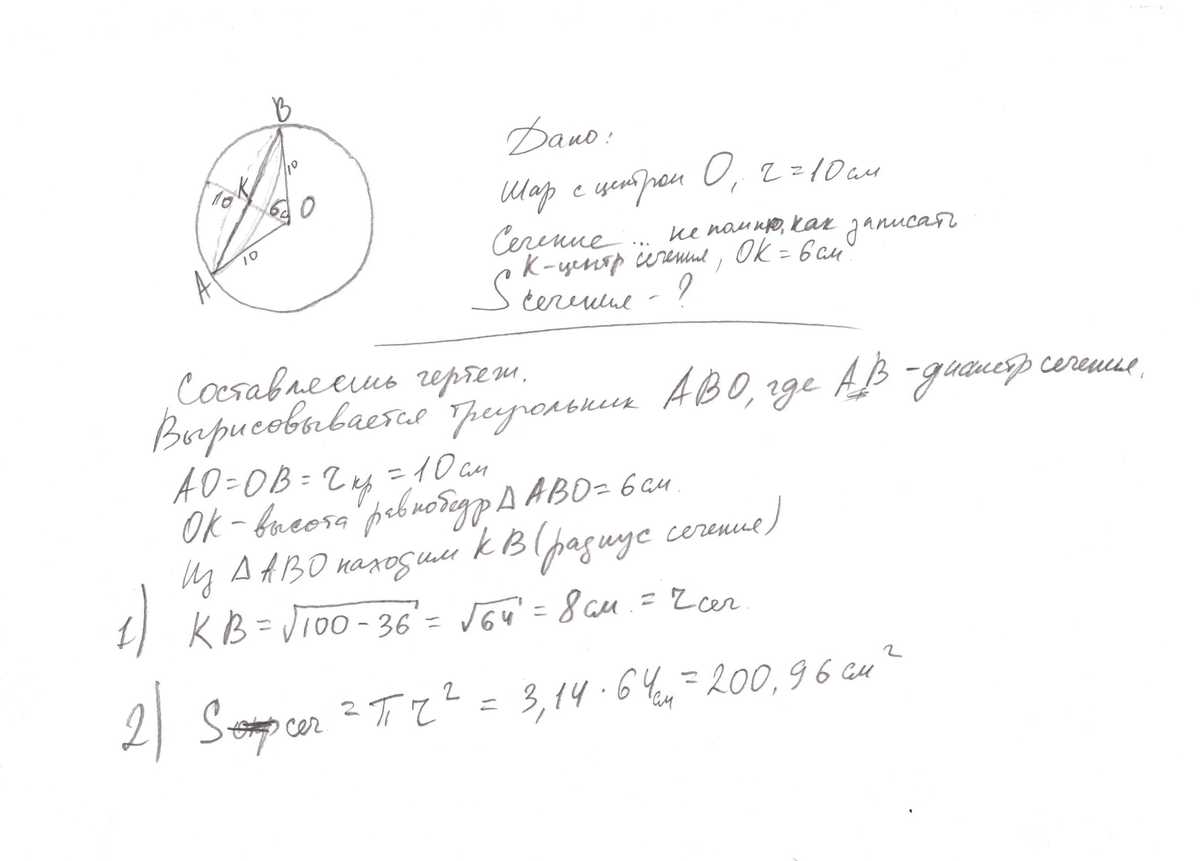 B
10
K
10
6
O
10
A
Дано:
Шар с центром О, r = 10 см
Сечение ... не помню, как записать
K - центр сечения, OK = 6 см
S сечения - ?
Составляешь чертеж.
Вырисовывается треугольник ABO, где AB - диаметр сечения.
AO = OB = r кр = 10 см
OK - высота равнобедр △ ABO = 6 см.
Из △ ABO находим KB (радиус сечение)
1) KB = √100 - 36 = √64 = 8 см. = r сеч.
2) S сеч = π r² = 3,14 · 64 см = 200,96 см²